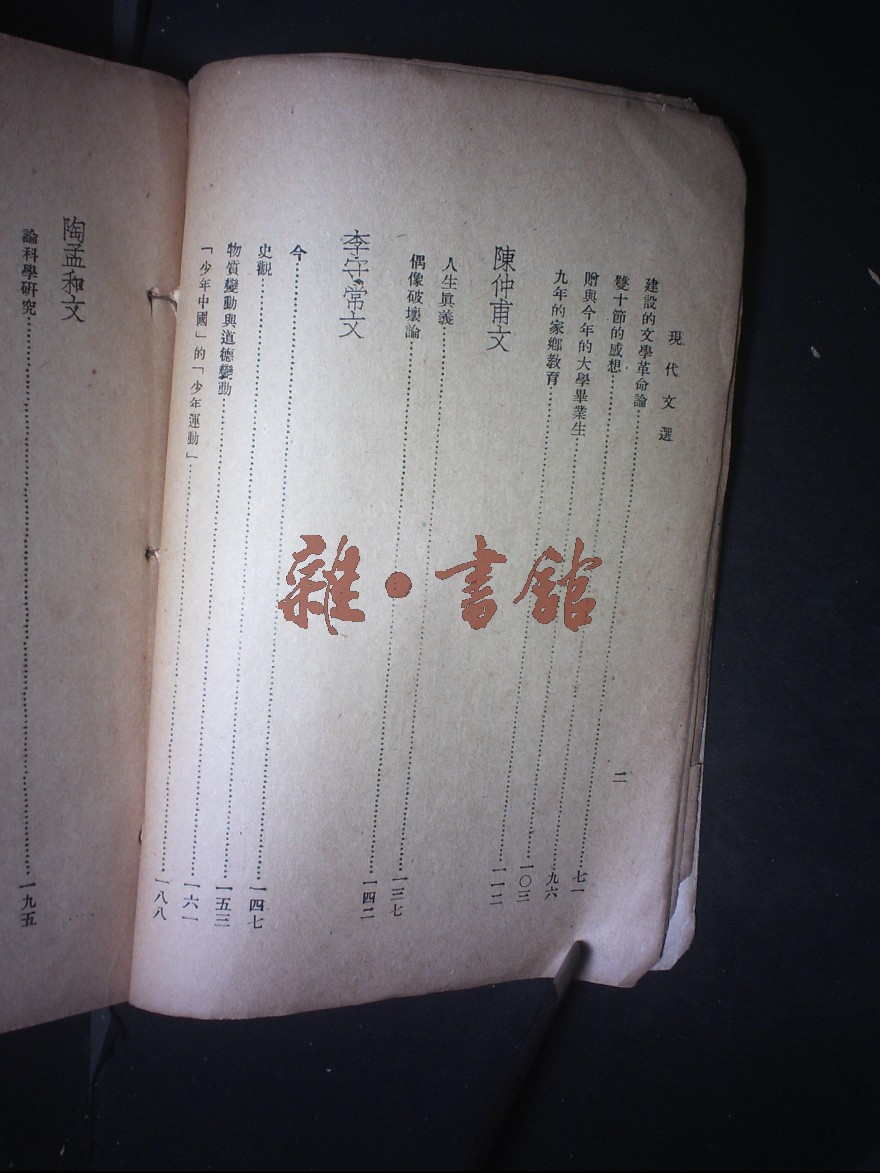 現代文選
二
建設的文學革命論……七一
雙十節的感想……九六
贈與今年的大學畢業生……一〇三
九年的家鄉教育……一一二
陳仲甫文
人生眞義……一三七
偶像破壞論……一四二
李守常文
今……一四七
史觀……一五三
物質變動與道德變動……一六一
「少年中國」的「少年運動」……一八八
陶孟和文
論科學研究……一九五
雜·書館